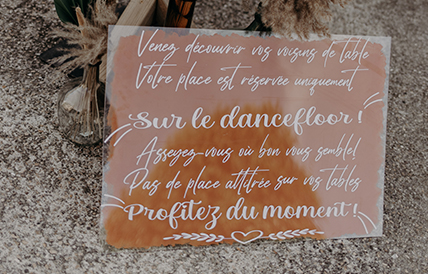 Venez découvrir vos voisins de table
Votre place est réservée uniquement
Sur le dancefloor !
Asseyez-vous où bon vous semble!
Pas de place attitrée sur vos tables
Profitez du moment !